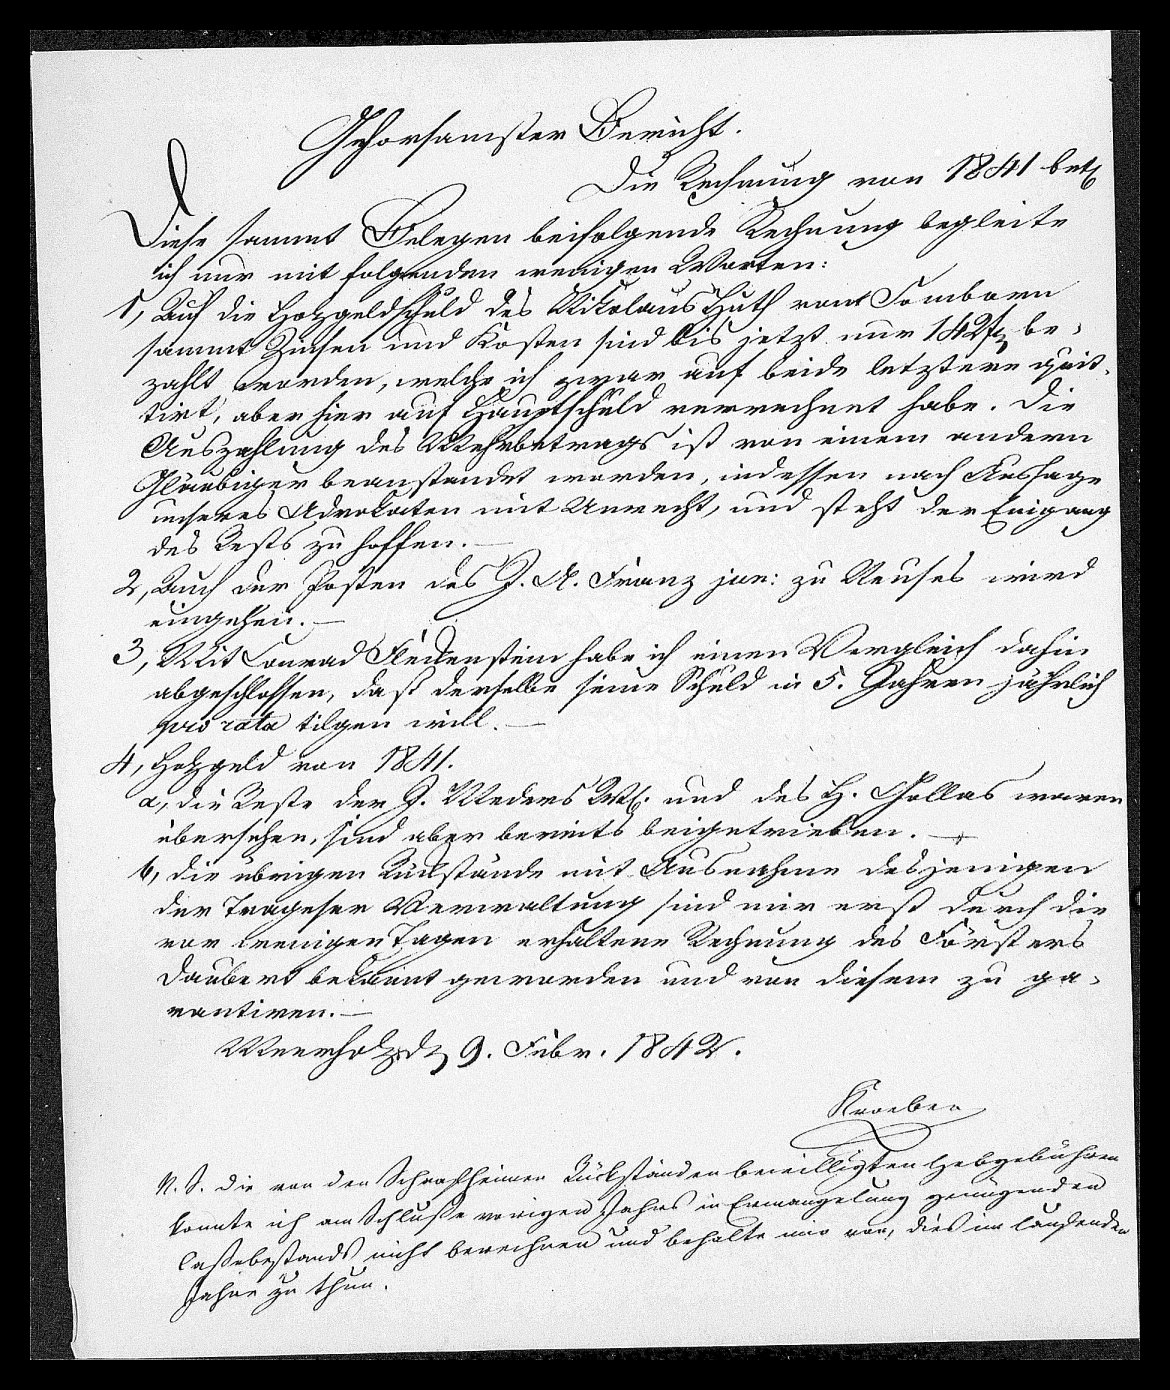 Gehorsamster Bericht.
Die Rechnung von 1841 betr.
Diese sammt Belegen beifolgende Rechnung begleite
ich nur mit folgenden wenigen Worten:
1, Auf die Holzgeldschuld des Nikolaus Huth von Somborn
sammt Zinsen und Kosten sind bis jetzt nur 142 f be-
zahlt worden, welche ich zwar auf beide letztere quit-
tirt, aber hier auf Hauptschuld verrechnet habe. Die
Auszahlung des Mehrbetrags ist von einem andern
Gläubiger beanstandet worden, indessen nach Aussage
unseres Advokaten mit Unrecht, und steht der Eingang
des Rests zu hoffen.—
2, Auch der Posten des J. A. Franz jun: zu Neuses wird
eingehen.—
3, Mit Conrad Fleckenstein habe ich einen Vergleich dahin
abgeschlossen, daß derselbe seine Schuld in 5. Jahren jährlich
pro rata tilgen will.—
4, Holzgeld von 1841.
a, die Reste der J. Meders Wb. und des H. waren
übersehen, sind aber bereits beigetrieben.—
b, die übrigen Rückstände mit Ausnahme desjenigen
der Trageser Verwaltung sind mir erst durch die
vor wenigen Tagen erhaltene Rechnung des Försters
Daubert bekannt geworden und von diesem zu ga-
rantiren.—
Meerholz d 9. Febr. 1842.
Kroeber
N. S. die von den Rückständen bewilligten Hebgebühren
konnte ich am Schluße vorigen Jahrs in Ermangelung genügenden
Caßebestands nicht berechnen und behalte mir vor, dies im laufenden
Jahre zu thun.